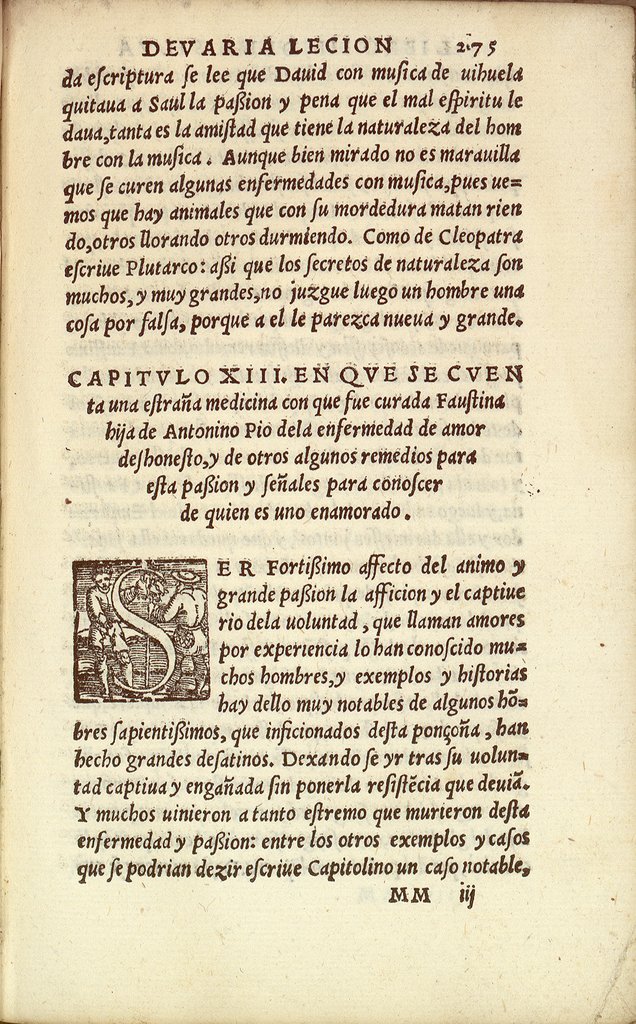 DEVARIA LECION 275
da eſcriptura ſe lee que Dauid con muſica de uihuela
quitaua a Saul la paßion y pena que el mal eſpiritu le
daua,tanta es la amiſtad que tiene la naturaleza del hom
bre con la muſica. Aunque bien mirado no es marauilla
que ſe curen algunas enfermedades con muſica,pues ue=
mos que hay animales que con ſu mordedura matan rien
do,otros llorando otros durmiendo. Como de Cleopatra
eſcriue Plutarco: aßi que los ſecretos de naturaleza ſon
muchos, y muy grandes,no juzgue luego un hombre una
coſa por falſa, porque a el le parezca nueua y grande.
CAPITVLO XIII. EN QVE SE CVEN
ta una eſtraña medicina con que fue curada Fauſtina
hija de Antonino Pio dela enfermedad de amor
deſhoneſto,y de otros algunos remedios para
eſta paßion y ſeñales para conoſcer
de quien es uno enamorado.
SER Fortißimo affecto del animo y
grande paßion la afficion y el captiue
rio dela uoluntad, que llaman amores
por experiencia lo han conoſcido mu=
chos hombres,y exemplos y hiſtorias
hay dello muy notables de algunos hõ=
bres ſapientißimos, que inficionados deſta ponçoña, han
hecho grandes deſatinos. Dexando ſe yr tras ſu uolun=
tad captiua y engañada ſin ponerla reſiſtẽcia que deuiã.
Y muchos uinieron a tanto eſtremo que murieron deſta
enfermedad y paßion: entre los otros exemplos y caſos
que ſe podrian dezir eſcriue Capitolino un caſo notable,
MM iij